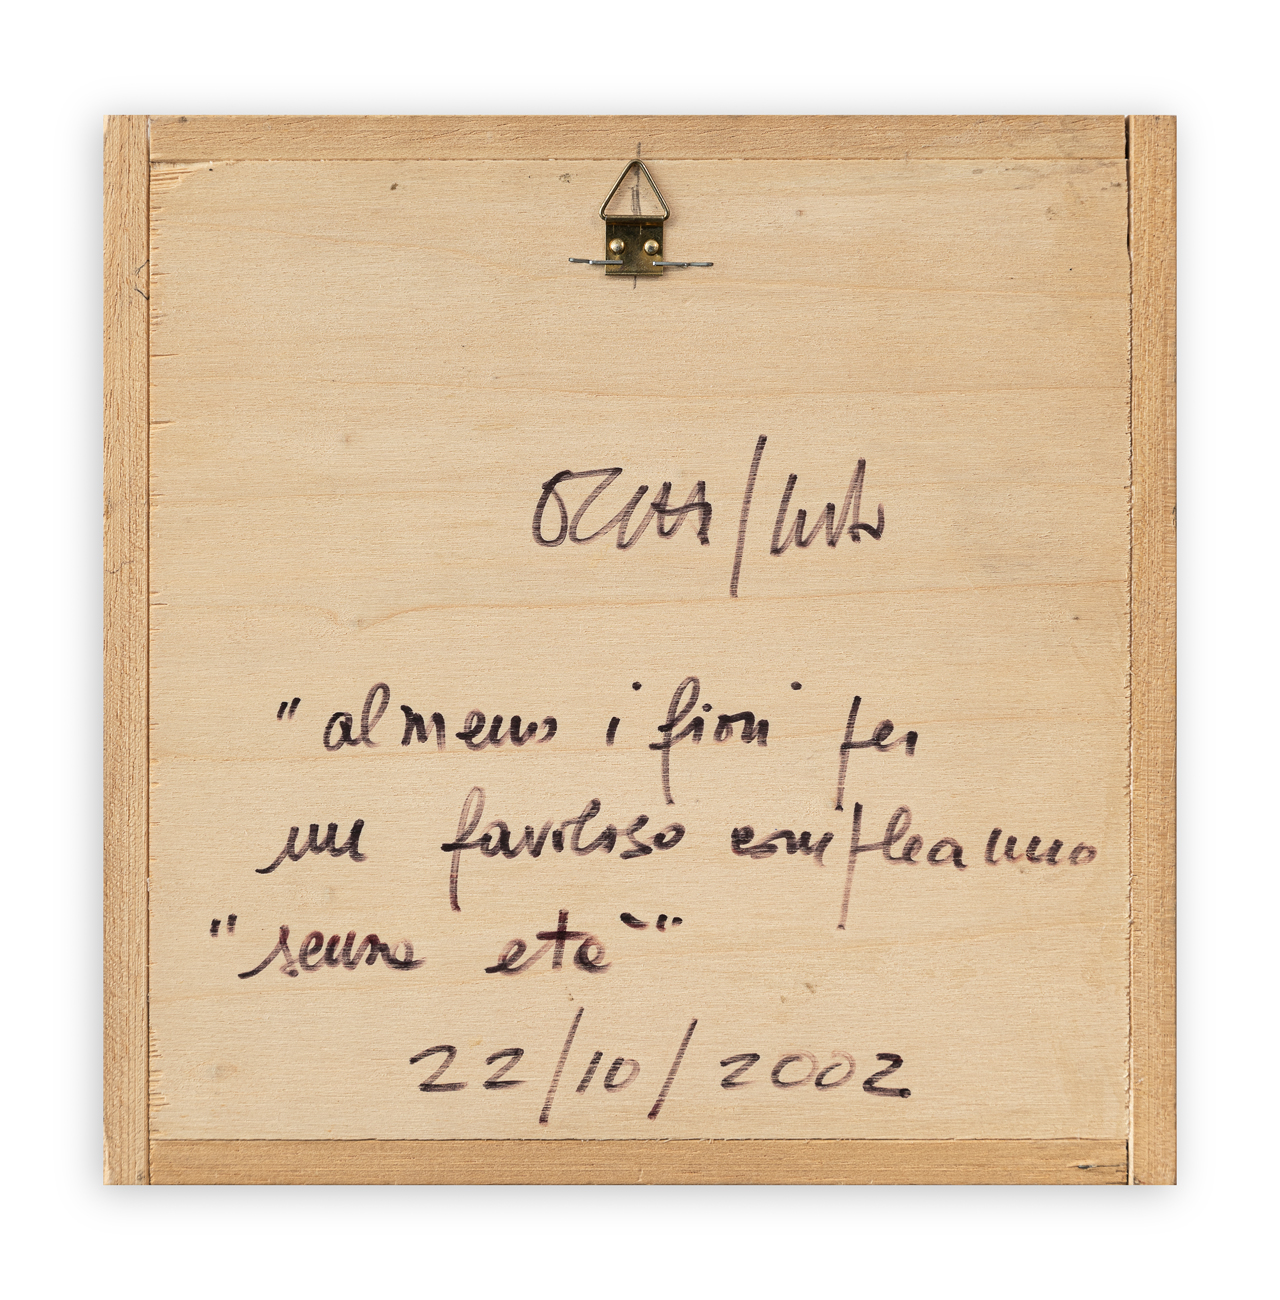 "almeno i fiori per
un favoloso compleanno
"senza età"
22/10/2002